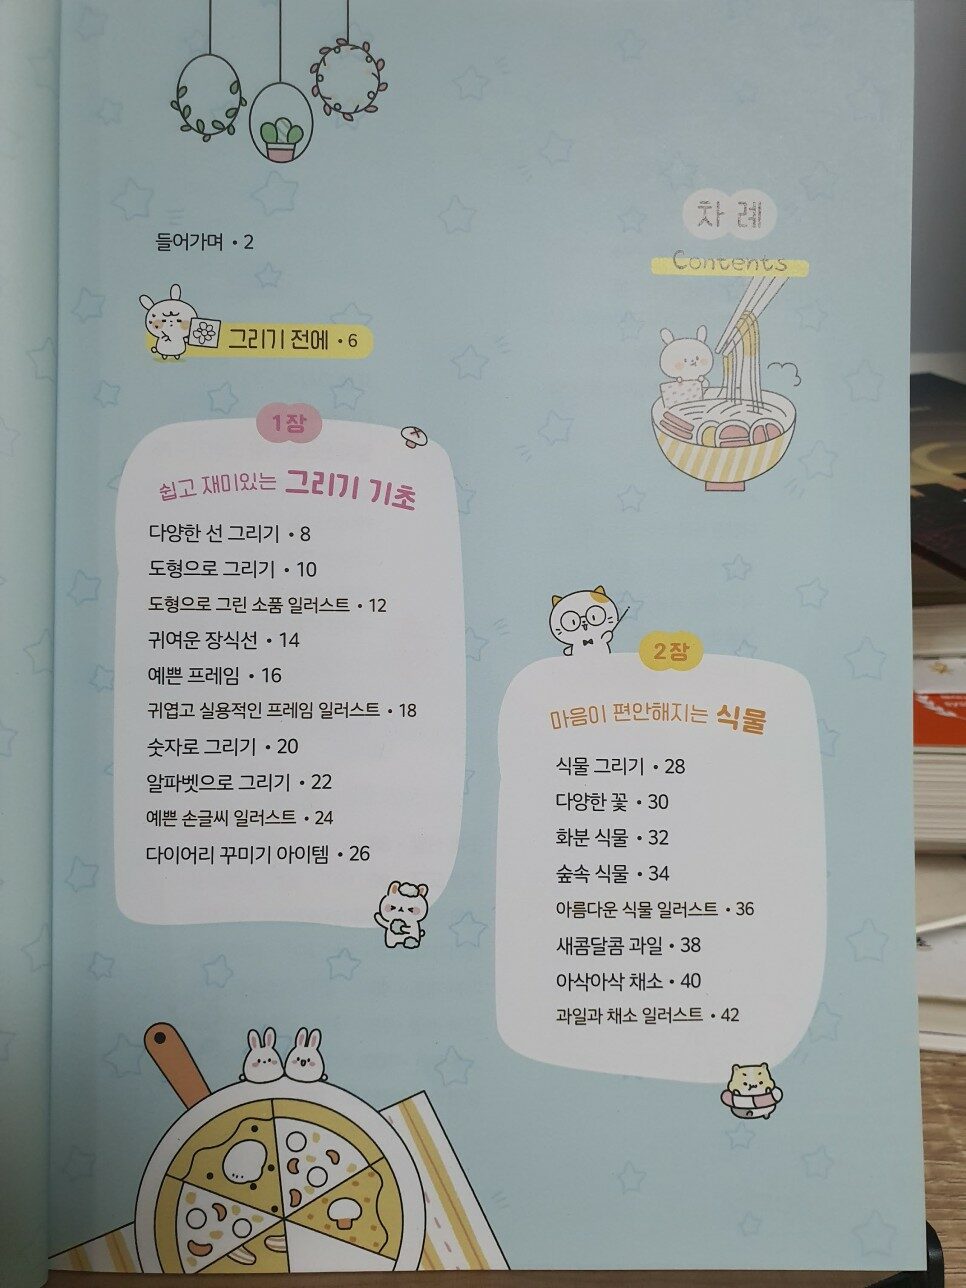 차례
Contents
들어가며 • 2
그리기 전에 • 6
1장
쉽고 재미있는 그리기 기초
다양한 선 그리기 • 8
도형으로 그리기 • 10
도형으로 그린 소품 일러스트 • 12
귀여운 장식선 • 14
예쁜 프레임 • 16
귀엽고 실용적인 프레임 일러스트 • 18
숫자로 그리기 • 20
알파벳으로 그리기 • 22
예쁜 손글씨 일러스트 • 24
다이어리 꾸미기 아이템 • 26
2장
마음이 편안해지는 식물
식물 그리기 • 28
다양한 꽃 • 30
화분 식물 • 32
숲속 식물 • 34
아름다운 식물 일러스트 • 36
새콤달콤 과일 • 38
아삭아삭 채소 • 40
과일과 채소 일러스트 • 42